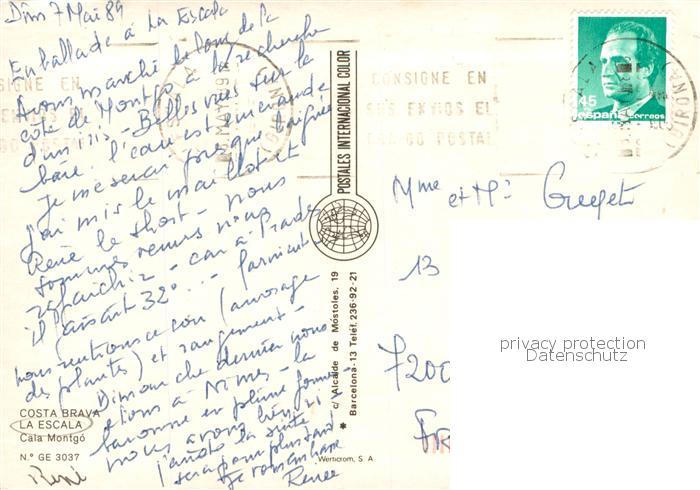 Dim 7 Mai 89
En ballade à La Escala
Avons marché le long de la
côte de Montgo à la recherche
d'un - Belles vues sur la
baie. L'eau est
Je me serai presque baignée
j'ai mis le maillot et
René le short - Nous
sommes venus nous
rafraichir - car à Prades
il faisant 32° ...
nous rentrons ce soir (arrosage
des plantes) et rangement -
Dimanche dernier nous
étions à Nîmes - la
en pleine forme
nous avons
la suite
sera pour plus tard
Renée
René
COSTA BRAVA
LA ESCALA
Cala Montgó
N.º GE 3037
POSTALES INTERNACIONAL COLOR
c/ Alcalde de Móstoles, 19
Barcelona-13 Teléf. 236-92-21
Werticrom, S. A.
CONSIGNE EN
SUS ENVIOS EL
CODIGO POSTAL
45
españa correos
(GIRONA)
Mme et Mr
13
7200
Fr
privacy protection
Datenschutz